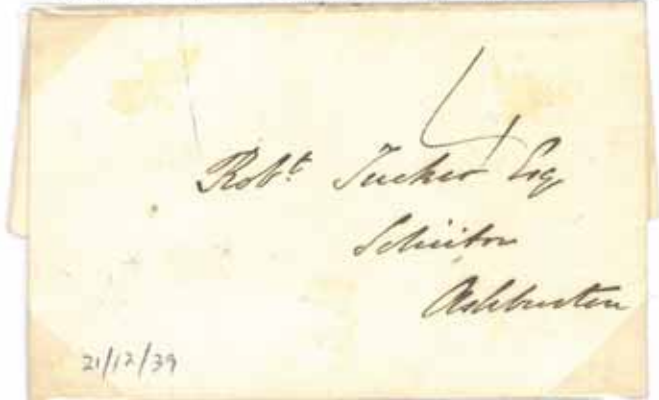 4
Robt Tucker Esq
Solicitor
Ashburton
21/12/39